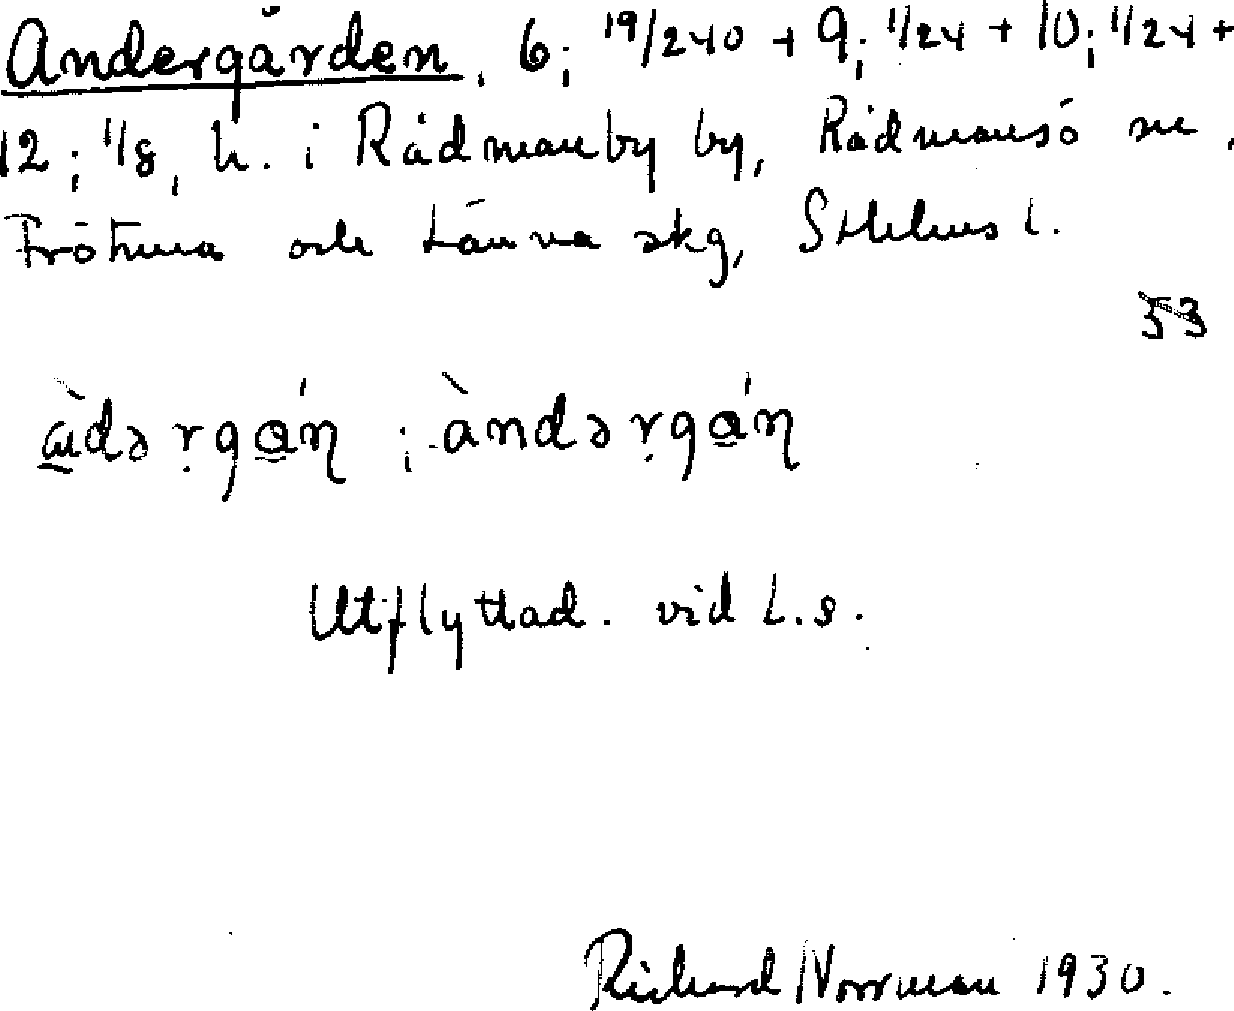 Andergården, 6; 19/240 + 9; 1/24 + 10; 1/24 +
12; 1/8, h. i Rådmanby by, Rådmansö sn,
Frötuna och Länna skg, Sthlms l.
53
àndərgán
Utflyttad. vid L.s.
Richard Norrman 1930.